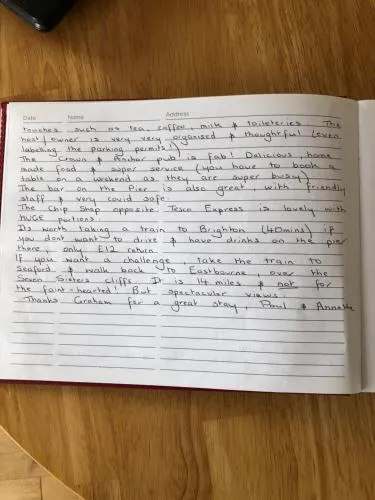 Date Name Address
touches such as tea, coffee, milk & toileteries. The
host/owner is very very organised & thoughtful (even
labelling the parking permits!)
The Crown & Anchor pub is fab! Delicious, home
made food & super service (you have to book a
table on a weekend as they are super busy)
The bar on the Pier is also great, with friendly
staff & very covid safe.
The Chip Shop opposite Tesco Express is lovely with
HUGE portions.
Its worth taking a train to Brighton (40mins) if
you dont want to drive & have drinks on the pier
there, only £12 return.
If you want a challenge, take the train to
Seaford & walk back to Eastbourne, over the
Seven Sisters cliffs. It is 14 miles & not for
the faint-hearted! But spectacular views.
Thanks Graham for a great stay, Paul & Annette